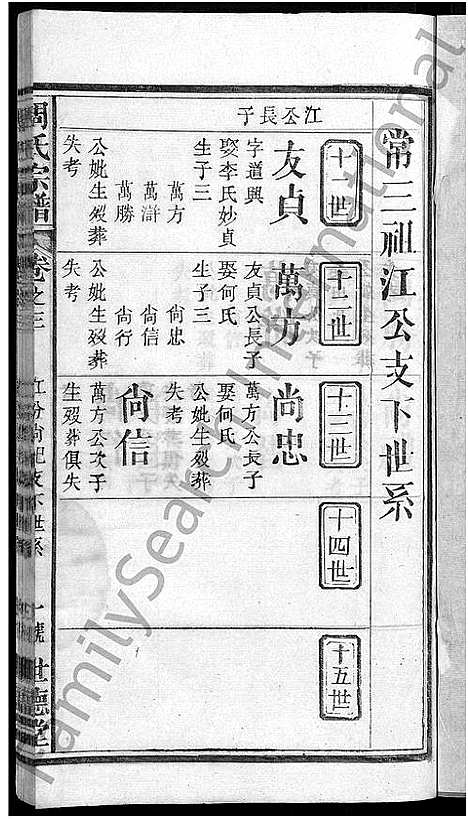 常三祖江公支下世系
十一世
江公長子
友貞
字道興
娶李氏妙貞
生子三
萬方
萬滸
萬勝
公妣生殁葬
失考
十二世
萬方
友貞公長子
娶何氏
生子三
尙忠
尙信
尙行
公妣生殁葬
失考
十三世
尚忠
萬方公長子
娶何氏
公妣生殁葬
失考
尙信
萬方公次子
生殁葬俱失
十四世
十五世
周氏宗譜
卷之三
支下世系
一號
世德堂
FamilySearch International